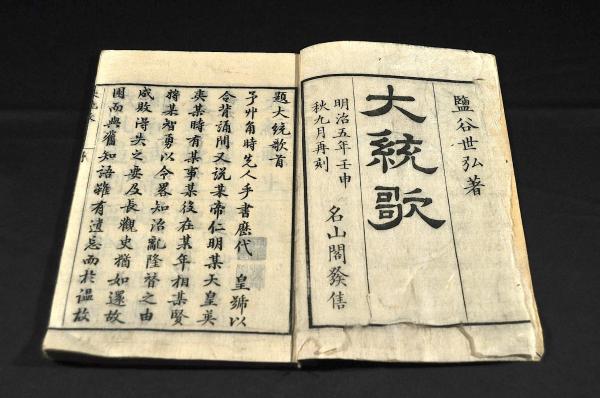 鹽谷世弘著
大統歌
明治五年壬申
秋九月再刻
名山閣發售
題大統歌首
予丱角時先人手書歷代 皇號以
令背誦間又説某帝仁明某天皇英
奕某時有某事某役在某年相某賢
將某智勇以令畧知治亂隆替之由
成敗得失之要及長觀史猶如還故
國而與舊知語雖有遺忘而於温故